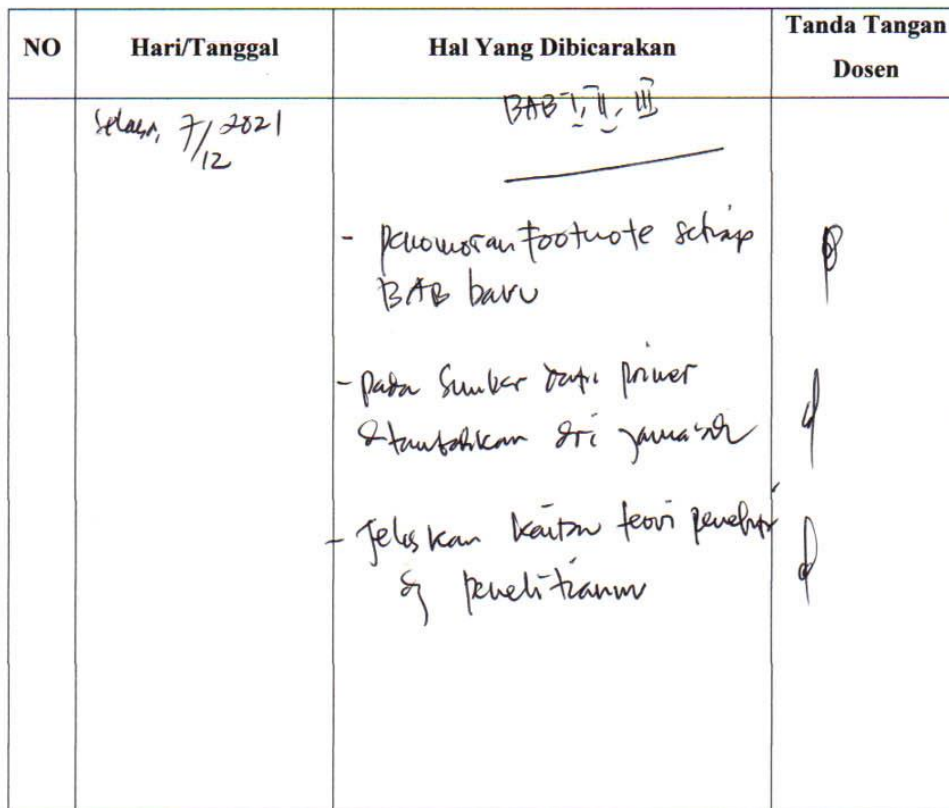 NO Hari/Tanggal Hal Yang Dibicarakan Tanda Tangan
Dosen
Selasa, 7/12 2021
BAB I, II, III
- penomoran footnote setiap
BAB baru
- pada Sumber data primer
ditambahkan dri jamaah
- Jelaskan kaitan teori
dg penelitianmu